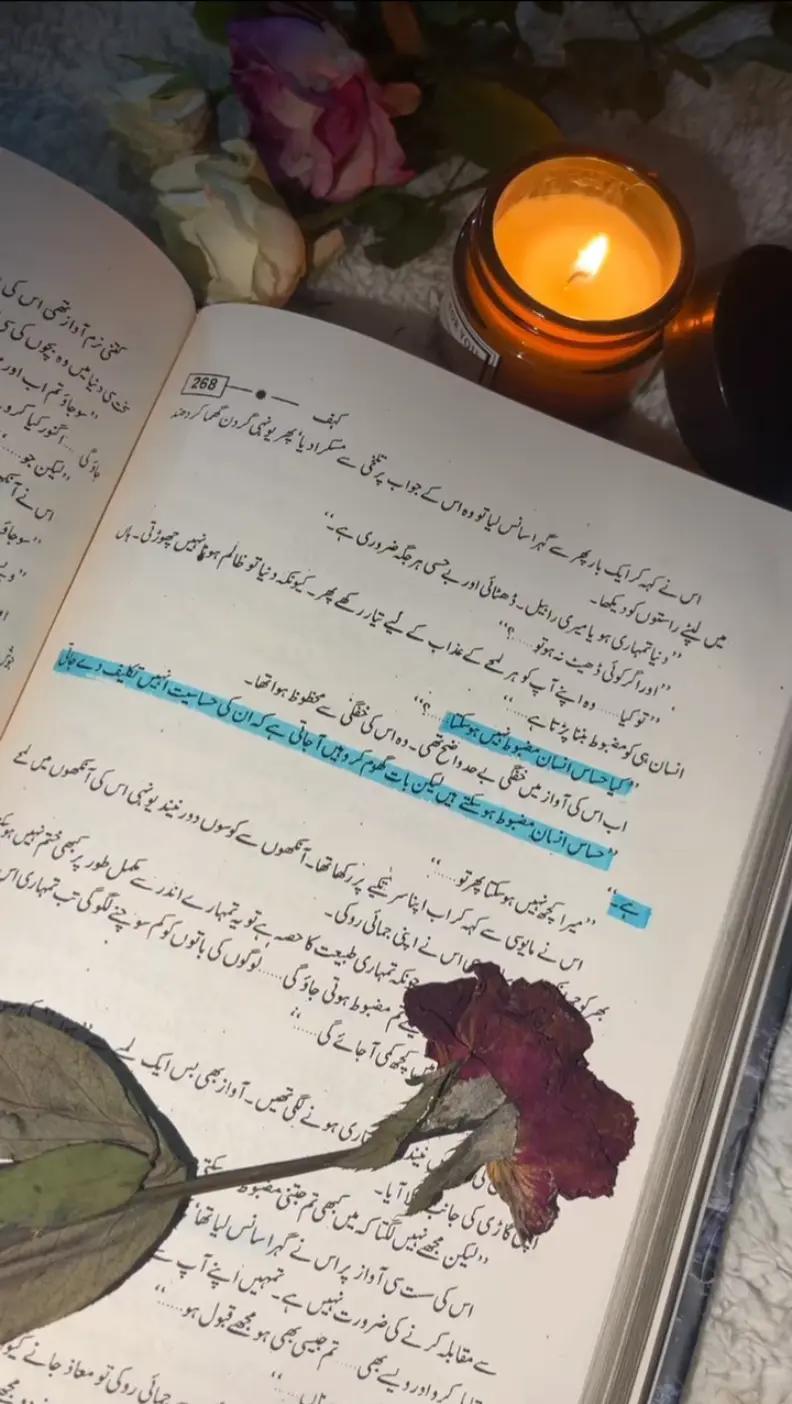 268
کہف
اس نے کہہ کر ایک بار پھر سے گہرا سانس لیا تو وہ اس کے جواب پر تلخی سے مسکرا دیا' پھر یونہی گردن گھما کر دھند
میں لپٹے راستوں کو دیکھا۔
"دنیا تمہاری ہو یا میری رابیل۔ ڈھٹائی اور بے حسی ہر جگہ ضروری ہے۔"
"اور اگر کوئی ڈھیٹ نہ ہو تو.....؟"
"تو کیا..... وہ اپنے آپ کو ہر لمحے کے عذاب کے لیے تیار رکھے پھر۔ کیونکہ دنیا تو ظالم ہونا نہیں چھوڑتی۔ ہاں
انسان ہی کو مضبوط بننا پڑتا ہے....."
"کیا حساس انسان مضبوط نہیں ہو سکتا.....؟"
اب اس کی آواز میں خفگی بے حد واضح تھی۔ وہ اس کی خفگی سے محظوظ ہوا تھا۔
"حساس انسان مضبوط ہو سکتے ہیں لیکن بات گھوم کر وہیں آ جاتی ہے کہ ان کی حساسیت انہیں تکلیف دے جاتی
ہے۔"
"میرا کچھ نہیں ہو سکتا پھر تو....."
اس نے مایوسی سے کہہ کر اب اپنا سر تکیے پر رکھا تھا۔ آنکھوں سے کوسوں دور نیند یونہی اس کی آنکھوں میں لمحے
اس نے اپنی جمائی روکی۔
چونکہ تمہاری طبیعت کا حصہ ہے تو یہ تمہارے اندر سے مکمل طور پر کبھی ختم نہیں
تم مضبوط ہوتی جاؤ گی..... لوگوں کی باتوں کو کم سوچنے لگو گی تب تمہاری اس
میں کچھ کمی آ جائے گی....."
ہونے لگی تھیں۔ آواز بھی بس ایک لمحے
اپنی گاڑی کی جانب آیا۔
"لیکن مجھے نہیں لگتا کہ میں کبھی تم جتنی مضبوط
اس کی ست سی آواز پر اس نے گہرا سانس لیا تھا'
سے مقابلہ کرنے کی ضرورت نہیں ہے۔ تمہیں اپنے آپ سے
کرو اور ویسے بھی..... تم جیسی بھی ہو مجھے قبول ہو....."
جمائی روکی تو معاذ جانے
کتنی نرم آواز تھی اس کی
دنیا میں وہ بچوں کی سی
"سو جاؤ تم اب اور
جاؤ گی..... اگنور کیا کرو
"لیکن جو.....
اس نے
"سو جاؤ
FOR YOU